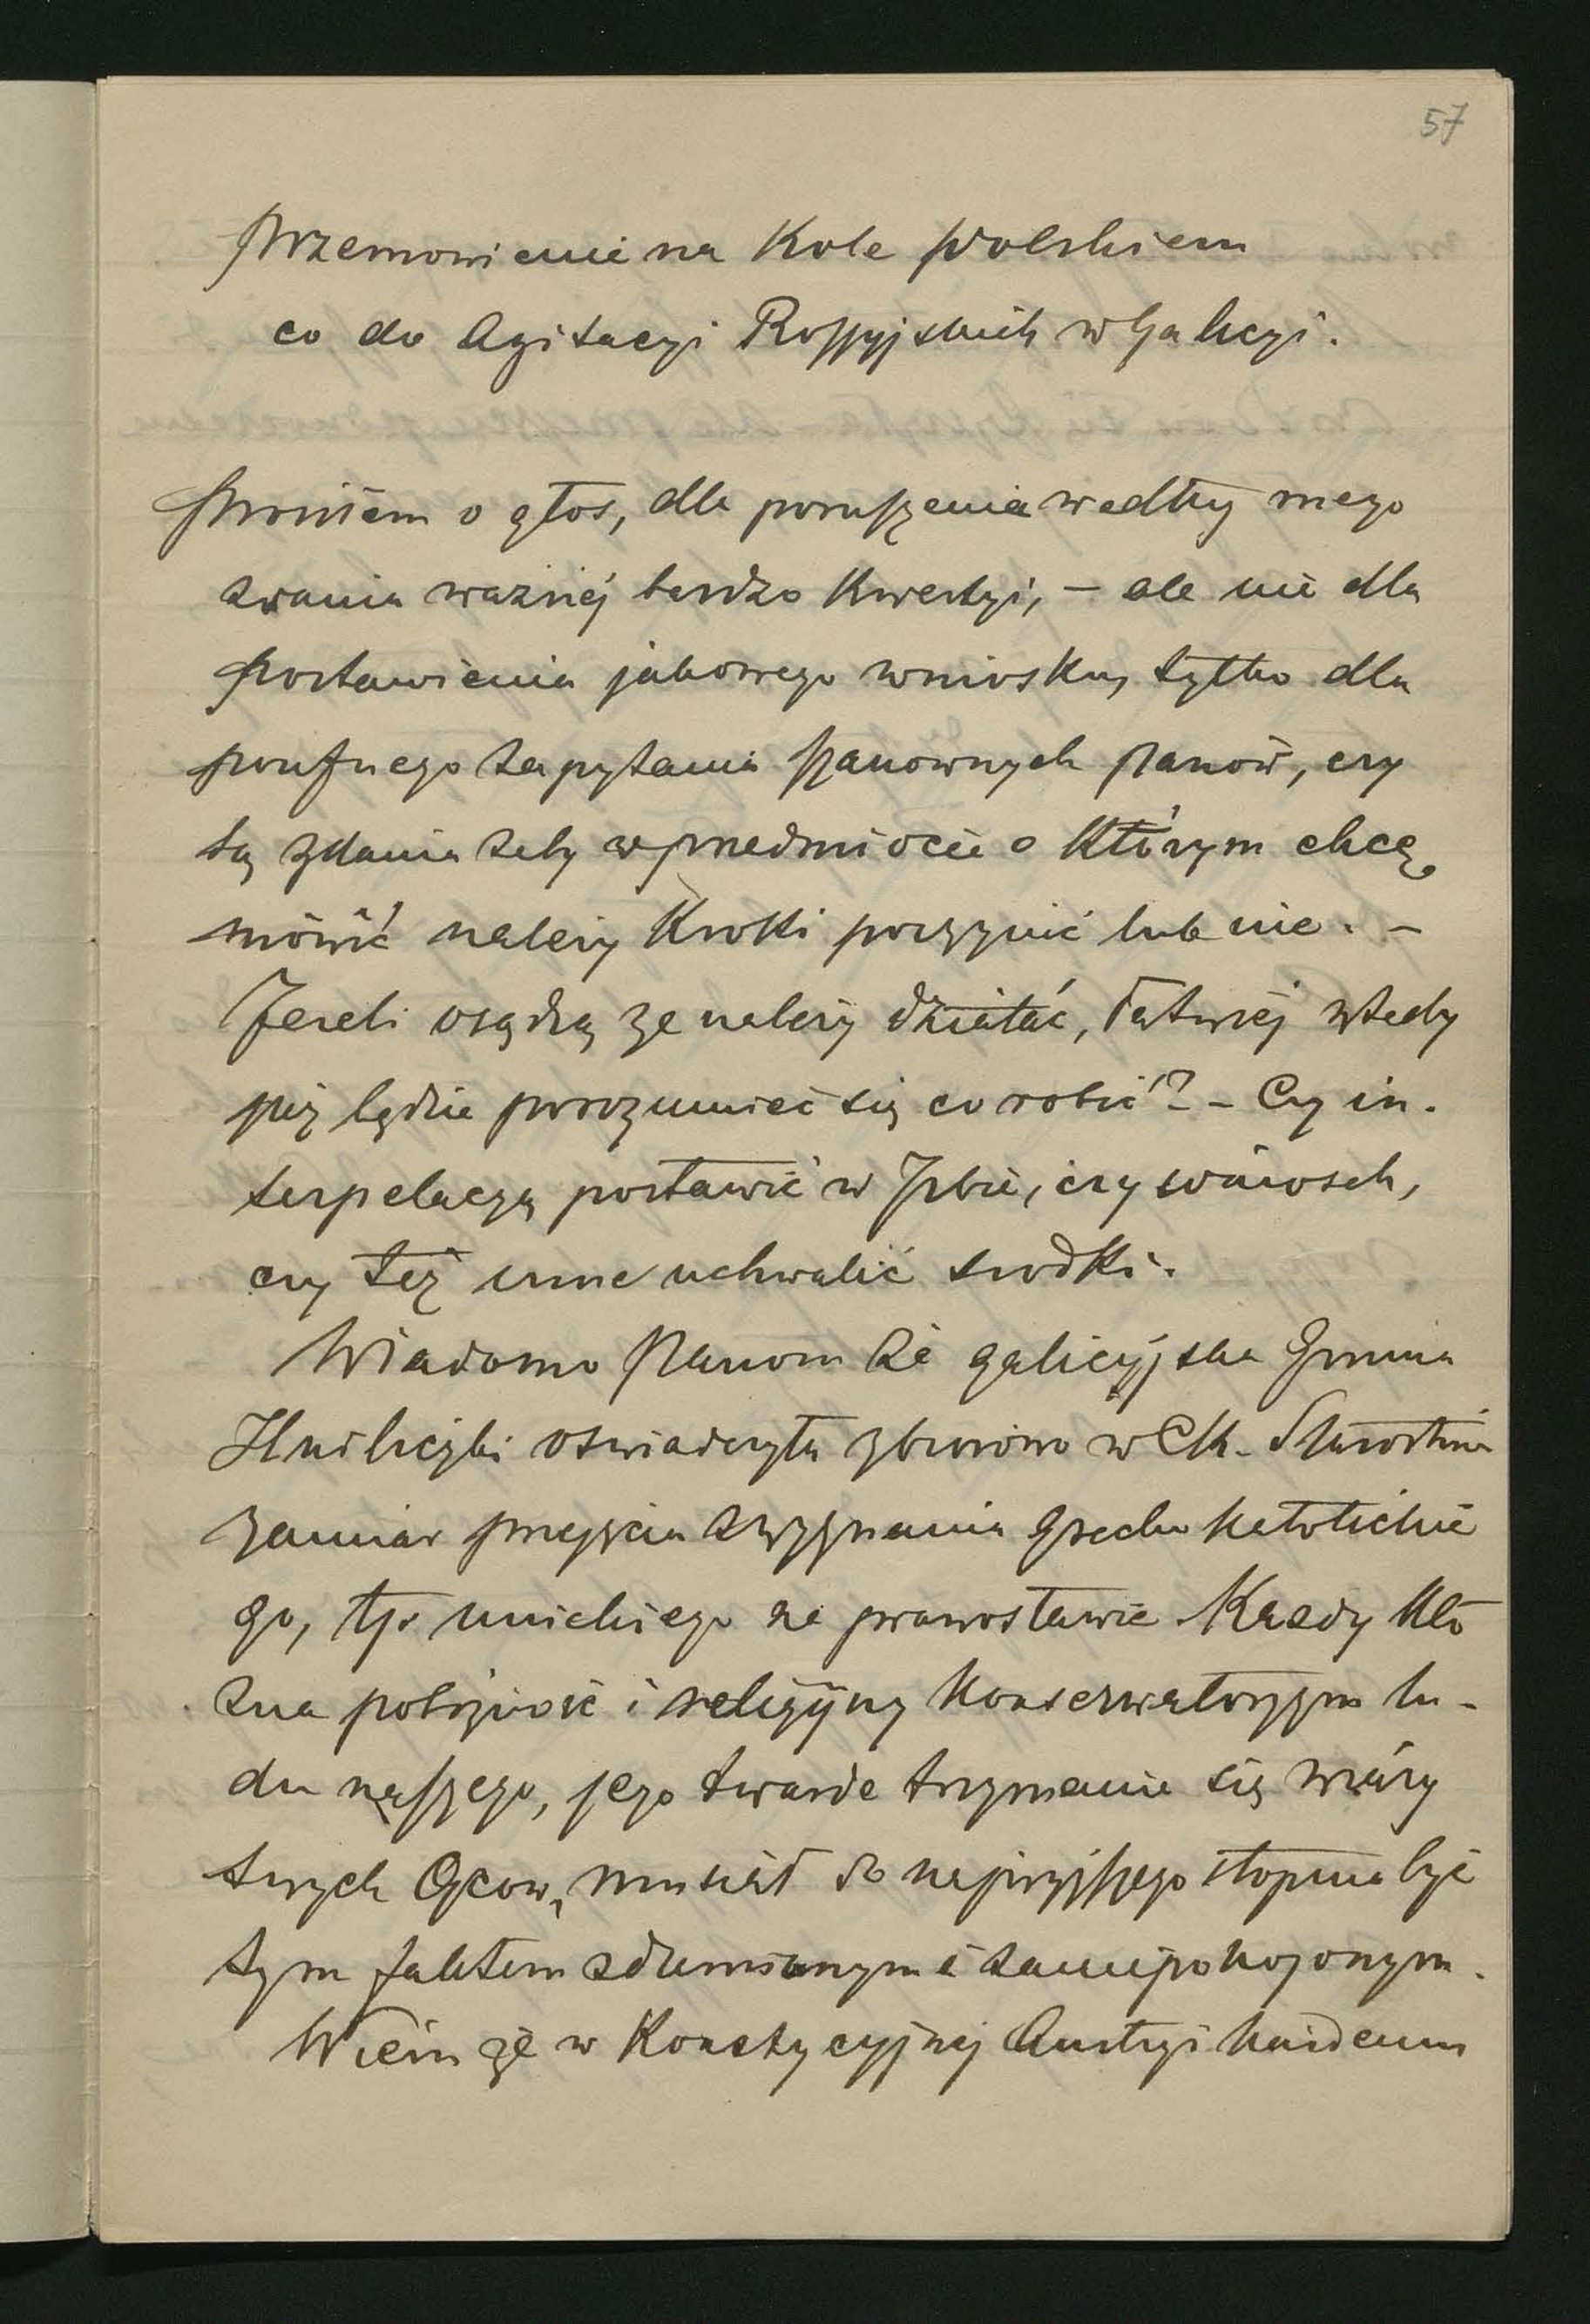 57
Przemowienie na Kole polskiem
co do Agitacyi Rossyjskich w Galicyi.
Prosiłem o głos, dla poruszenia wedłuy mego
zdania ważnéj bardzo Kwestyi, – ale nie dla
postawienia jakowego wniosku, tylko dla
poufnego zapytania szanownych panów, czy
są zdania żeby w przedmiocie o którym chcę
mówić należy Kroki poczynić lub nie. –
Jezeli osądzą ze należy działać, łatwiéj wtedy
już będzie porozumieć się co robić? – Czy in-
terpelacyą postawić w Izbie, czy wniosek,
czy też inne uchwalić srodki.
Wiadomo Panom że galicyjska Gmina
Hniliczki oswiadczyła zbiorowo w CK. Starostwie
zamiar przejscia z wyznania Grecko katolickie
go, tj. unickiego na prawosławie. Kazdy kto
zna pobożność i religijny konserwatyzm lu-
du naszego, jego twarde trzymanie się wiary
swych Ojcow, musiał do najwyższego stopnia być
tym faktem zdumionym i zaniepokojonym.
Wiem że w Konstycyjnej Austryi każdemu